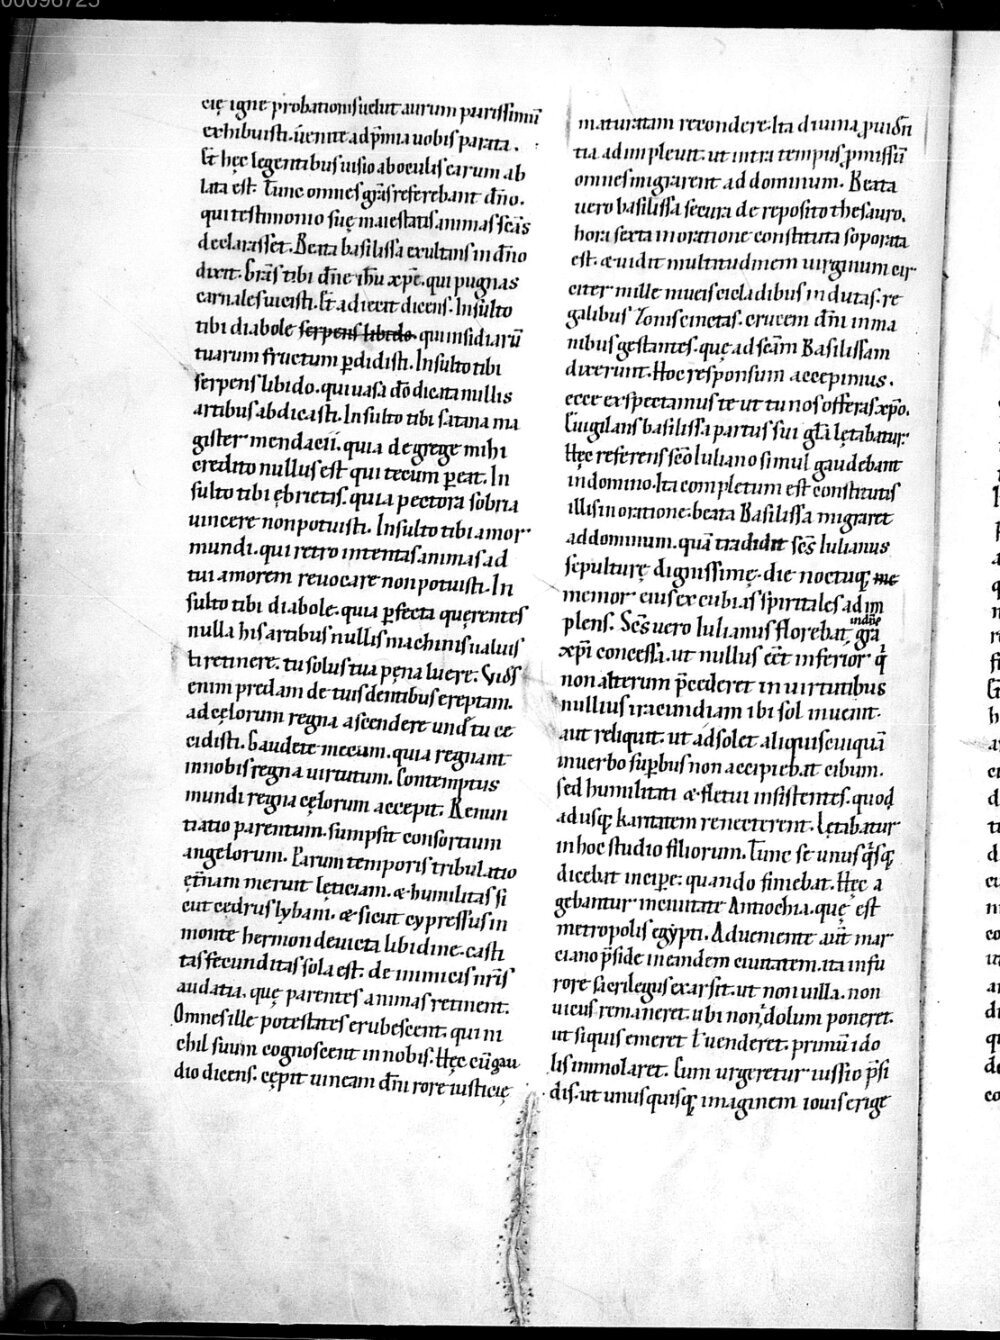 00098725
cię igne probationis uelut aurum purissimū
exhibuisti. uenite ad p̄mia uobis parata.
Et hęc legentibus uisio ab oculis earum ab
lata est. Tunc omnes grās referebant dn̄o.
qui testimonio suę maiestatis animas sc̄as
declarasset. Beata basilissa exultans in dn̄o
dixit. Grās tibi dn̄e ih̄u xp̄e. qui pugnas
carnales uicisti. Et adiecit dicens. Insulto
tibi diabole serpens libido. qui insidiarū
tuarum fructum ꝑdidisti. Insulto tibi
serpens libido. qui uasa dō dicata nullis
artibus abdicasti. Insulto tibi satana ma
gister mendacii. quia de grege mihi
credito nullus est qui tecum ꝑeat. In
sulto tibi ębrietas. quia pectora sobria
uincere non potuisti. Insulto tibi amor
mundi. qui retro intentas animas ad
tui amorem reuocare non potuisti. In
sulto tibi diabole. quia ꝑfecta quęrentes
nulla his artibus nullis machinis ualuis
ti retinere. tu solus tua pęna luere. Vidēs
enim predam de tuis dentibus ereptam.
ad cęlorum regna ascendere unde tu ce
cidisti. Gaudete mecum. quia regnant
in nobis regna uirtutum. Contemptus
mundi regna cęlorum accepit. Renun
tiatio parentum. sumpsit consortium
angelorum. Parum temporis tribulatio
ęt̄nam meruit lęticiam. & humilitas si
cut cedrus lybani. & sicut cypressus in
monte hermon deuicta libidine. casti
tas fecunditas sola est. de inimicis nr̄is
audatia. quę parentes animas retinent.
Omnes ille potestates erubescent. qui ni
chil suum cognoscent in nobis. Hęc cū gau
dio dicens. cępit uineam dn̄i rore iusticię
maturatam recondere. Ita diuina ꝓuidn̄
tia adimpleuit. ut intra tempus ꝓmissū
omnes migrarent ad dominum. Beata
uero basilissa secura de reposito thesauro.
hora sexta in oratione constituta soporata
est. & uidit multitudinem uirginum cir
citer mille niueis cicladibus indutas. re
galibus zonis cinctas. crucem dn̄i in ma
nibus gestantes. quę ad sc̄am Basilissam
dixerunt. Hoc responsum accepimus.
ecce exspectamus te ut tu nos offeras xp̄o.
Euigilans basilissa partus sui gl̄a lętabatur.
Hęc referens sc̄o Iuliano simul gaudebant
in domino. Ita completum est constitutis
illis in oratione. beata Basilissa migraret
ad dominum. quā tradidit sc̄s Iulianus
sepulturę dignissimę. die noctuq; me
memor eius excubias spiritales adim
plens. Sc̄s uero Iulianus florebat, grā
xp̄i concessa. ut nullus eēt inferior q̄
non alterum p̄cederet in uirtutibus
nullius iracundiam ibi sol inuenit.
aut reliquit. ut adsolet aliquis cuiquā
in uerbo suꝑbus non accipiebat cibum.
sed humilitati & fletui insistentes. quod
adusq; karitatem renecterent. Lętabatur
in hoc studio filiorum. Tunc se unusq̄sq;
dicebat inciꝑe. quando finiebat. Hęc a
gebantur in ciuitate Antiochia. quę est
metropolis egypti. Adueniente aut̄ mar
ciano p̄side in eandem ciuitatem. ita infu
rore sacrilegus exarsit. ut non uilla. non
uicus remaneret. ubi non, dolum poneret.
ut siquis emeret ł uenderet. primū ido
lis immolaret. Cum urgeretur iussio p̄si
dis. ut unusquisq; imaginem iouis erige